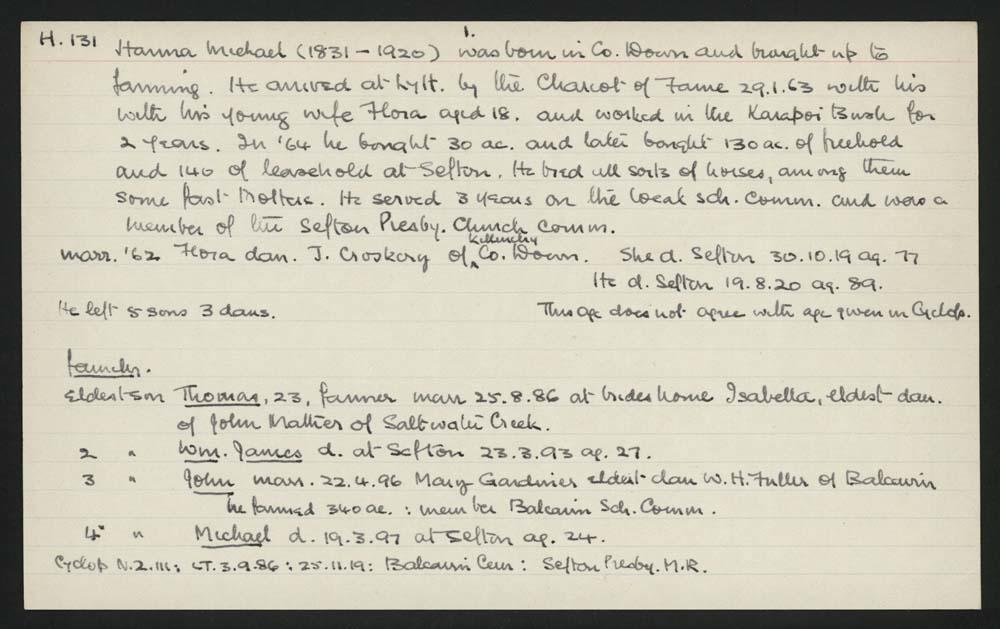 H. 131
1.
Hanna Michael (1831 - 1920) was born in Co. Down and brought up to
farming. He arrived at Lytt. by the Chariot of Fame 29.1.63 with his
with his young wife Flora aged 18. and worked in the Kaiapoi Bush for
2 years. In '64 he bought 30 ac. and later bought 130 ac. of freehold
and 140 of leasehold at Sefton. He bred all sorts of horses, among them
some fast trotters. He served 3 years on the local sch. comm. and was a
member of the Sefton Presby. Church comm.
marr. '62 Flora dau. J. Croskery of Killinchy Co. Down. She d. Sefton 30.10.19 ag. 77
He d. Sefton 19.8.20 ag. 89.
He left 5 sons 3 daus. This age does not agree with age given in Cyclop.
family.
Eldest son Thomas, 23, farmer marr 25.8.86 at brides home Isabella, eldest dau.
of John Mathers of Saltwater Creek.
2 " Wm. James d. at Sefton 23.3.93 ag. 27.
3 " John marr. 22.4.96 Mary Gardiner eldest dau W.H. Fuller of Balcairn
he farmed 340 ac. : member Balcairn Sch. Comm.
4 " Michael d. 19.3.97 at Sefton ag. 24.
Cyclop N.2.111; LT. 3.9.86 : 25.11.19 : Balcairn Cem : Sefton Presby. M.R.